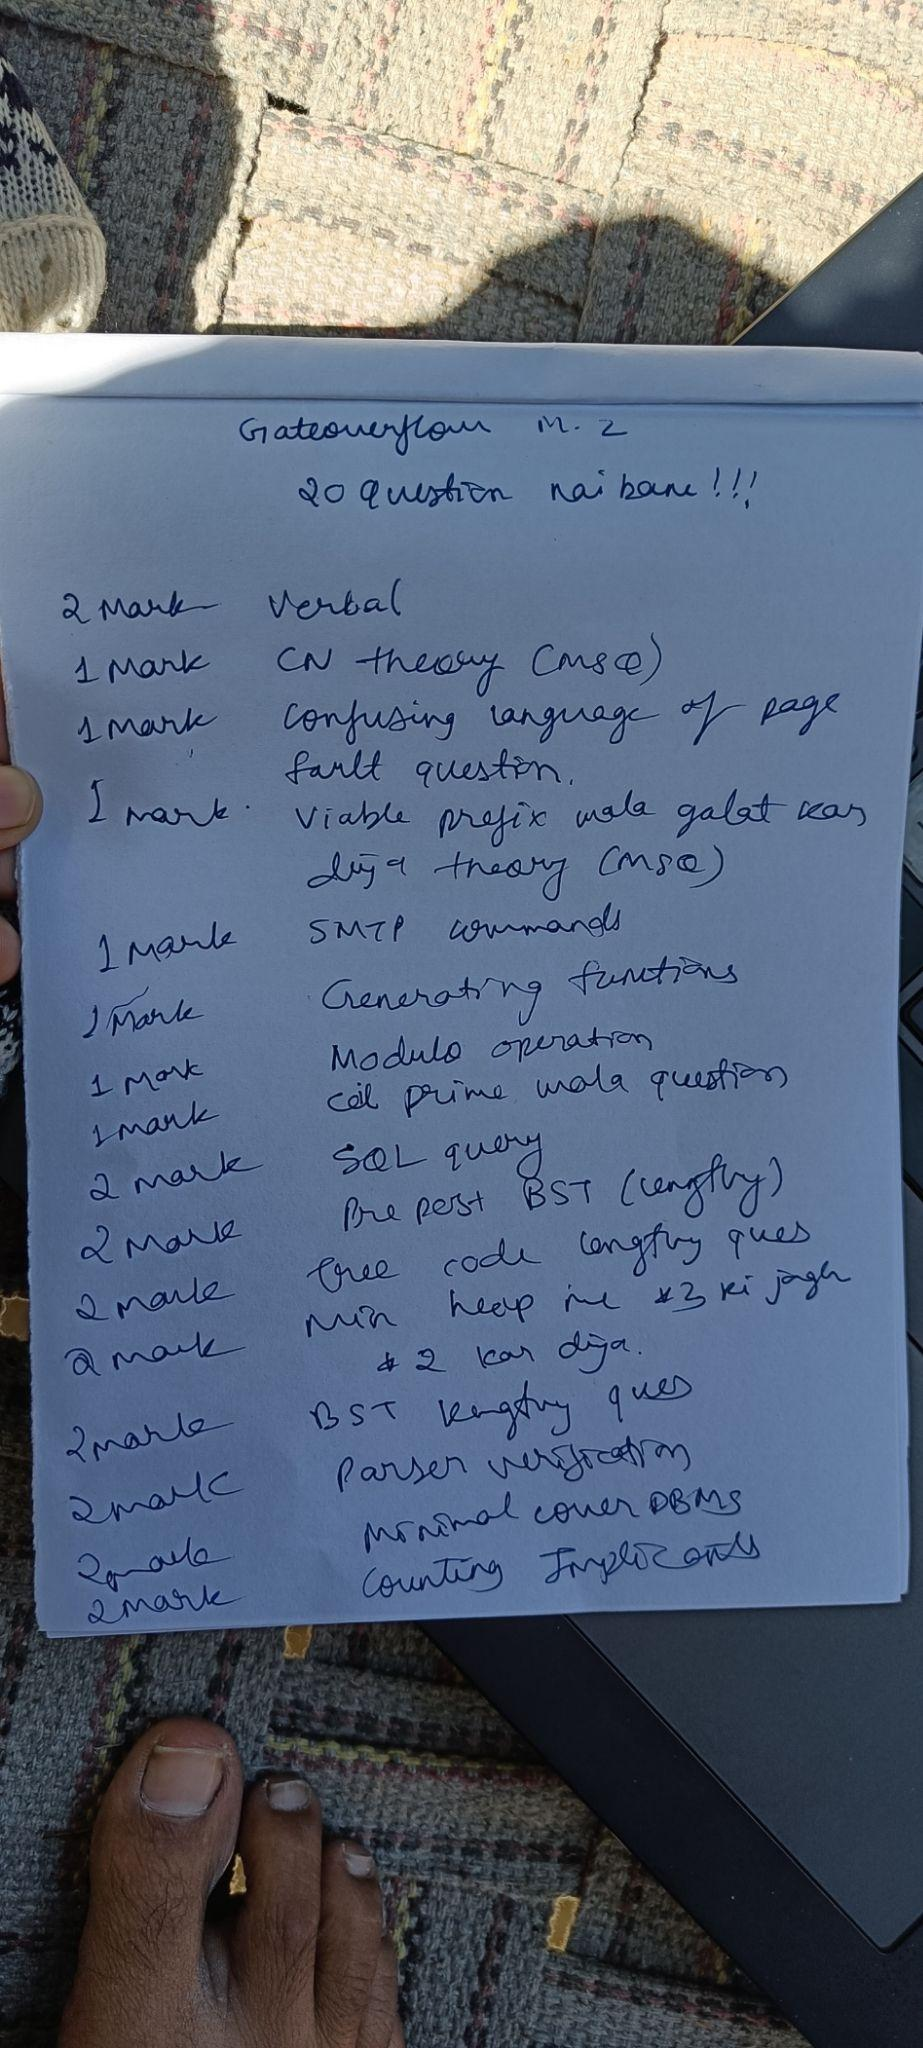 Gateoverflow M. 2
20 question nai bane!!!
2 Mark Verbal
1 Mark CN theory (MSQ)
1 Mark Confusing language of page
fault question.
1 mark. Viable prefix wala galat kar
diya theory (MSQ)
1 Mark SMTP commands
1 Mark Generating functions
1 Mark Modulo operation
1 mark prime wala question
2 mark SQL query
2 Mark Pre post BST (lengthy)
2 mark tree code lengthy ques
2 mark Min heap me *3 ki jagh
* 2 kar diya.
2 mark BST lengthy ques
2 mark Parser verification
2 mark Minimal cover DBMS
2 mark Counting Implicants